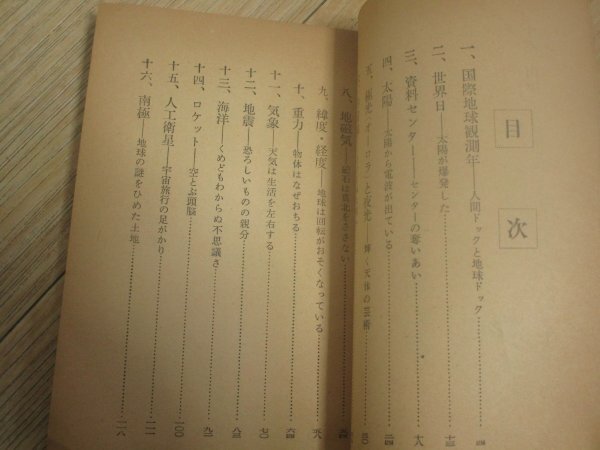 目次
一、国際地球観測年——人間ドックと地球ドック
二、世界日——太陽が爆発した
三、資料センター——センターの奪いあい
四、太陽——太陽から電波が出ている
五、極光(オーロラ)と夜光——輝く天体の芸術
八、地磁気——磁石は真北をささない
九、緯度・経度——地球は回転がおそくなっている
十、重力——物体はなぜおちる
十一、気象——天気は生活を左右する
十二、地震——恐ろしいものの親分
十三、海洋——くめどもわからぬ不思議さ
十四、ロケット——空とぶ頭脳
十五、人工衛星——宇宙旅行の足がかり
十六、南極——地球の謎をひめた土地